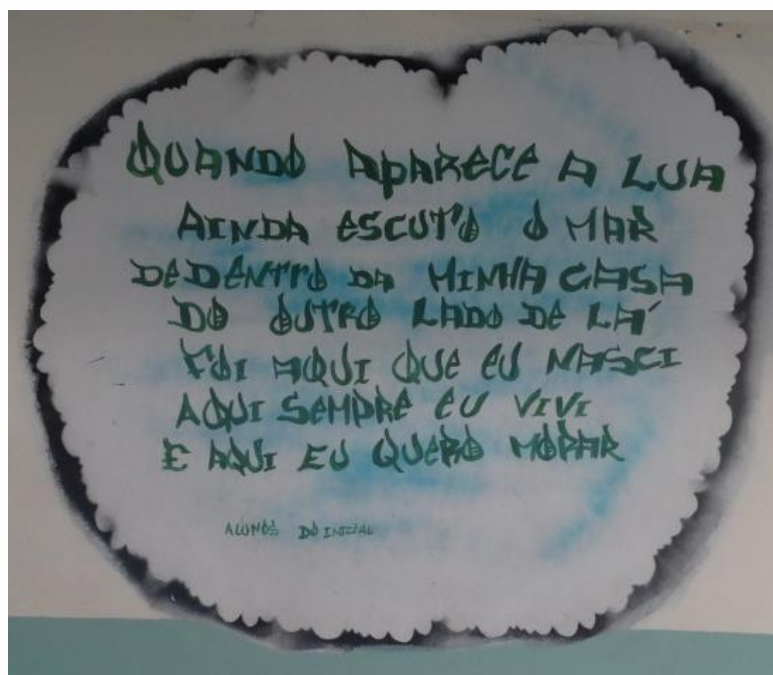 QUANDO APARECE A LUA
AINDA ESCUTO O MAR
DE DENTRO DA MINHA CASA
DO OUTRO LADO DE LÁ
FOI AQUI QUE EU NASCI
AQUI SEMPRE EU VIVI
E AQUI EU QUERO MORAR
ALUNOS DO INICIAL